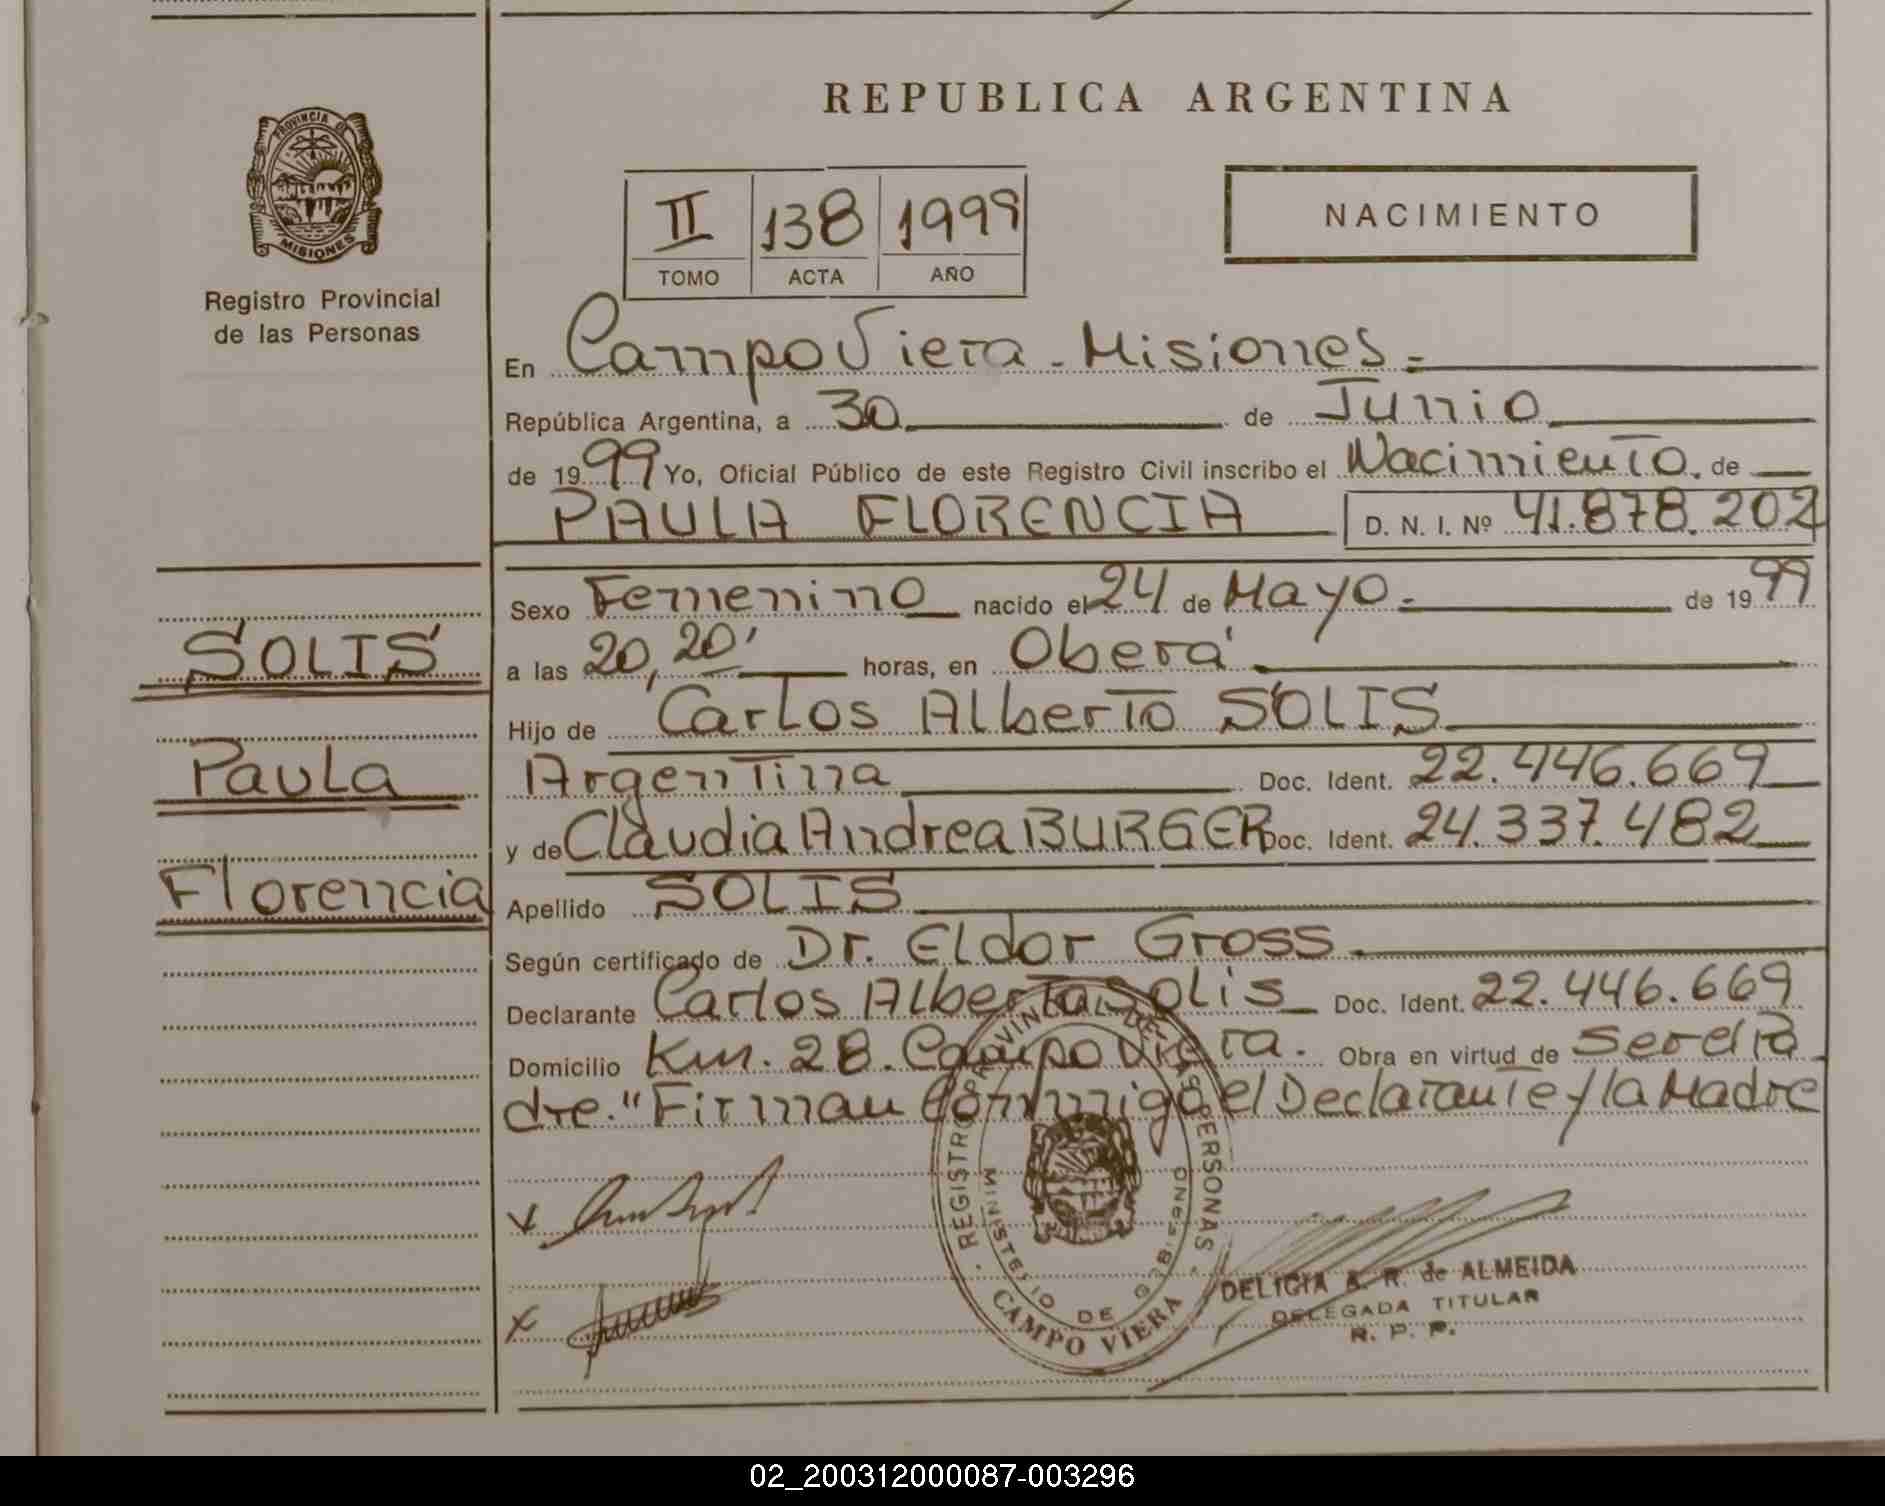 REPUBLICA ARGENTINA
PROVINCIA DE
MISIONES
Registro Provincial
de las Personas
II 138 1999
TOMO ACTA AÑO
NACIMIENTO
En Campo Viera - Misiones.=
República Argentina, a 30 de Junio
de 1999 Yo, Oficial Público de este Registro Civil inscribo el Nacimiento. de
PAULA FLORENCIA D. N. I. Nº 41.878.202
SOLIS
Paula
Florencia
Sexo Femenino nacido el 24 de Mayo.- de 1999
a las 20,20' horas, en Oberá
Hijo de Carlos Alberto SOLIS
Argentina Doc. Ident. 22.446.669
y de Claudia Andrea BURGER Doc. Ident. 24.337.482
Apellido SOLIS
Según certificado de Dr. Eldor Gross.
Declarante Carlos Alberto Solis Doc. Ident. 22.446.669
Domicilio Km. 28. Campo Viera. Obra en virtud de ser el Pa
dre." Firman Conmigo el Declarante y la Madre
REGISTRO PROVINCIAL DE LAS PERSONAS
MINISTERIO DE GOBIERNO
CAMPO VIERA
DELICIA A. R. de ALMEIDA
DELEGADA TITULAR
R. P. P.
02_200312000087-003296